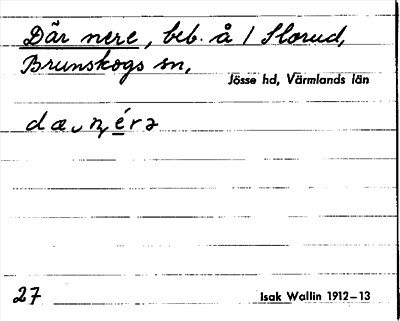 Där nere, beb. å 1 Slorud,
Brunskogs sn,
Jösse hd, Värmlands län
27
Isak Wallin 1912–13